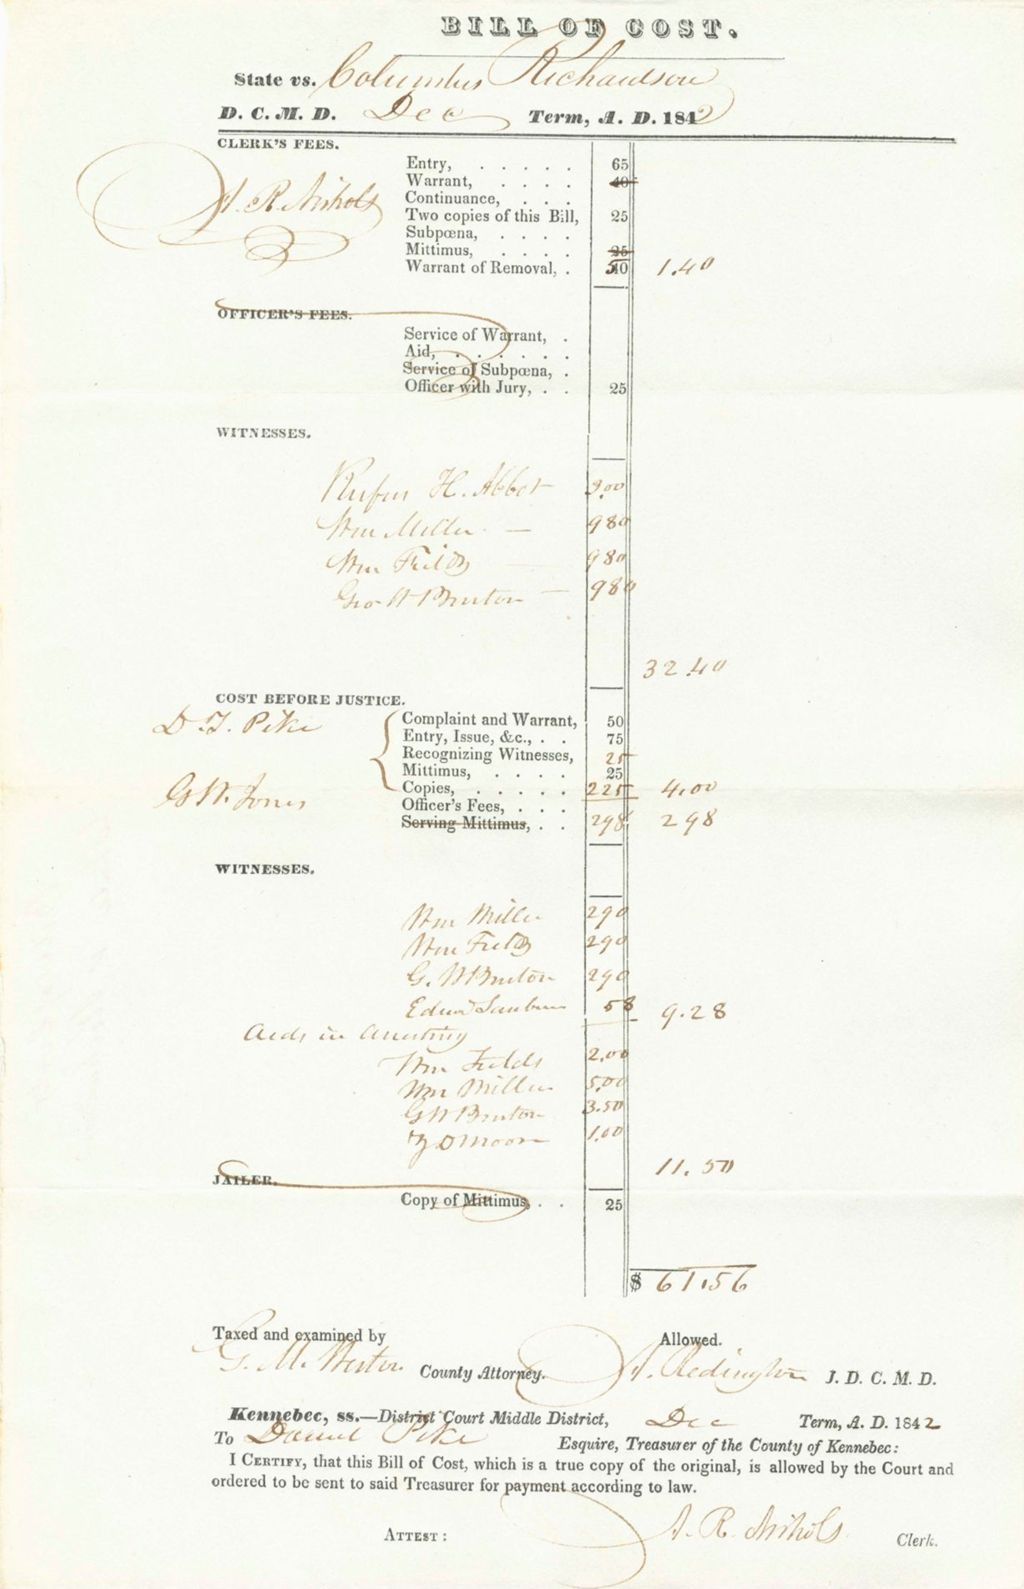 BILL OF COST.
State vs. Columbus Richardson
D. C. M. D. Dec Term, A. D. 1842
CLERK'S FEES.
Entry, . . . . . 65
Warrant, . . . . 40
A. R. Nichols Continuance, . . .
Two copies of this Bill, 25
Subpœna, . . . .
Mittimus, . . . . 25
Warrant of Removal, . 50 1.40
OFFICER'S FEES.
Service of Warrant, .
Aid, . . . . . .
Service of Subpœna, .
Officer with Jury, . . 25
WITNESSES.
Rufus H. Abbot 3.00
Wm Miller — 980
Wm Fields — 980
Geo W Bruton — 980
32.40
COST BEFORE JUSTICE.
D. T. Pike Complaint and Warrant, 50
Entry, Issue, &c., . . 75
Recognizing Witnesses, 25
Mittimus, . . . . 25
Copies, . . . . . 225 4.00
G W. Jones Officer's Fees, . . .
Serving Mittimus, . . 298 298
WITNESSES.
Wm Miller 290
Wm Fields 290
G. W Bruton 290
58 9.28
Aids in Arresting
Wm Fields 2.00
Wm Miller 5.00
G W Bruton 3.50
Moore 1.00
11.50
JAILER.
Copy of Mittimus, . . 25
$ 61.56
Taxed and examined by Allowed.
G. M. Weston County Attorney. A. Redington J. D. C. M. D.
Kennebec, ss.—District Court Middle District, Dec Term, A. D. 1842
To Daniel Pike Esquire, Treasurer of the County of Kennebec:
I CERTIFY, that this Bill of Cost, which is a true copy of the original, is allowed by the Court and
ordered to be sent to said Treasurer for payment according to law.
ATTEST: A. R. Nichols Clerk.